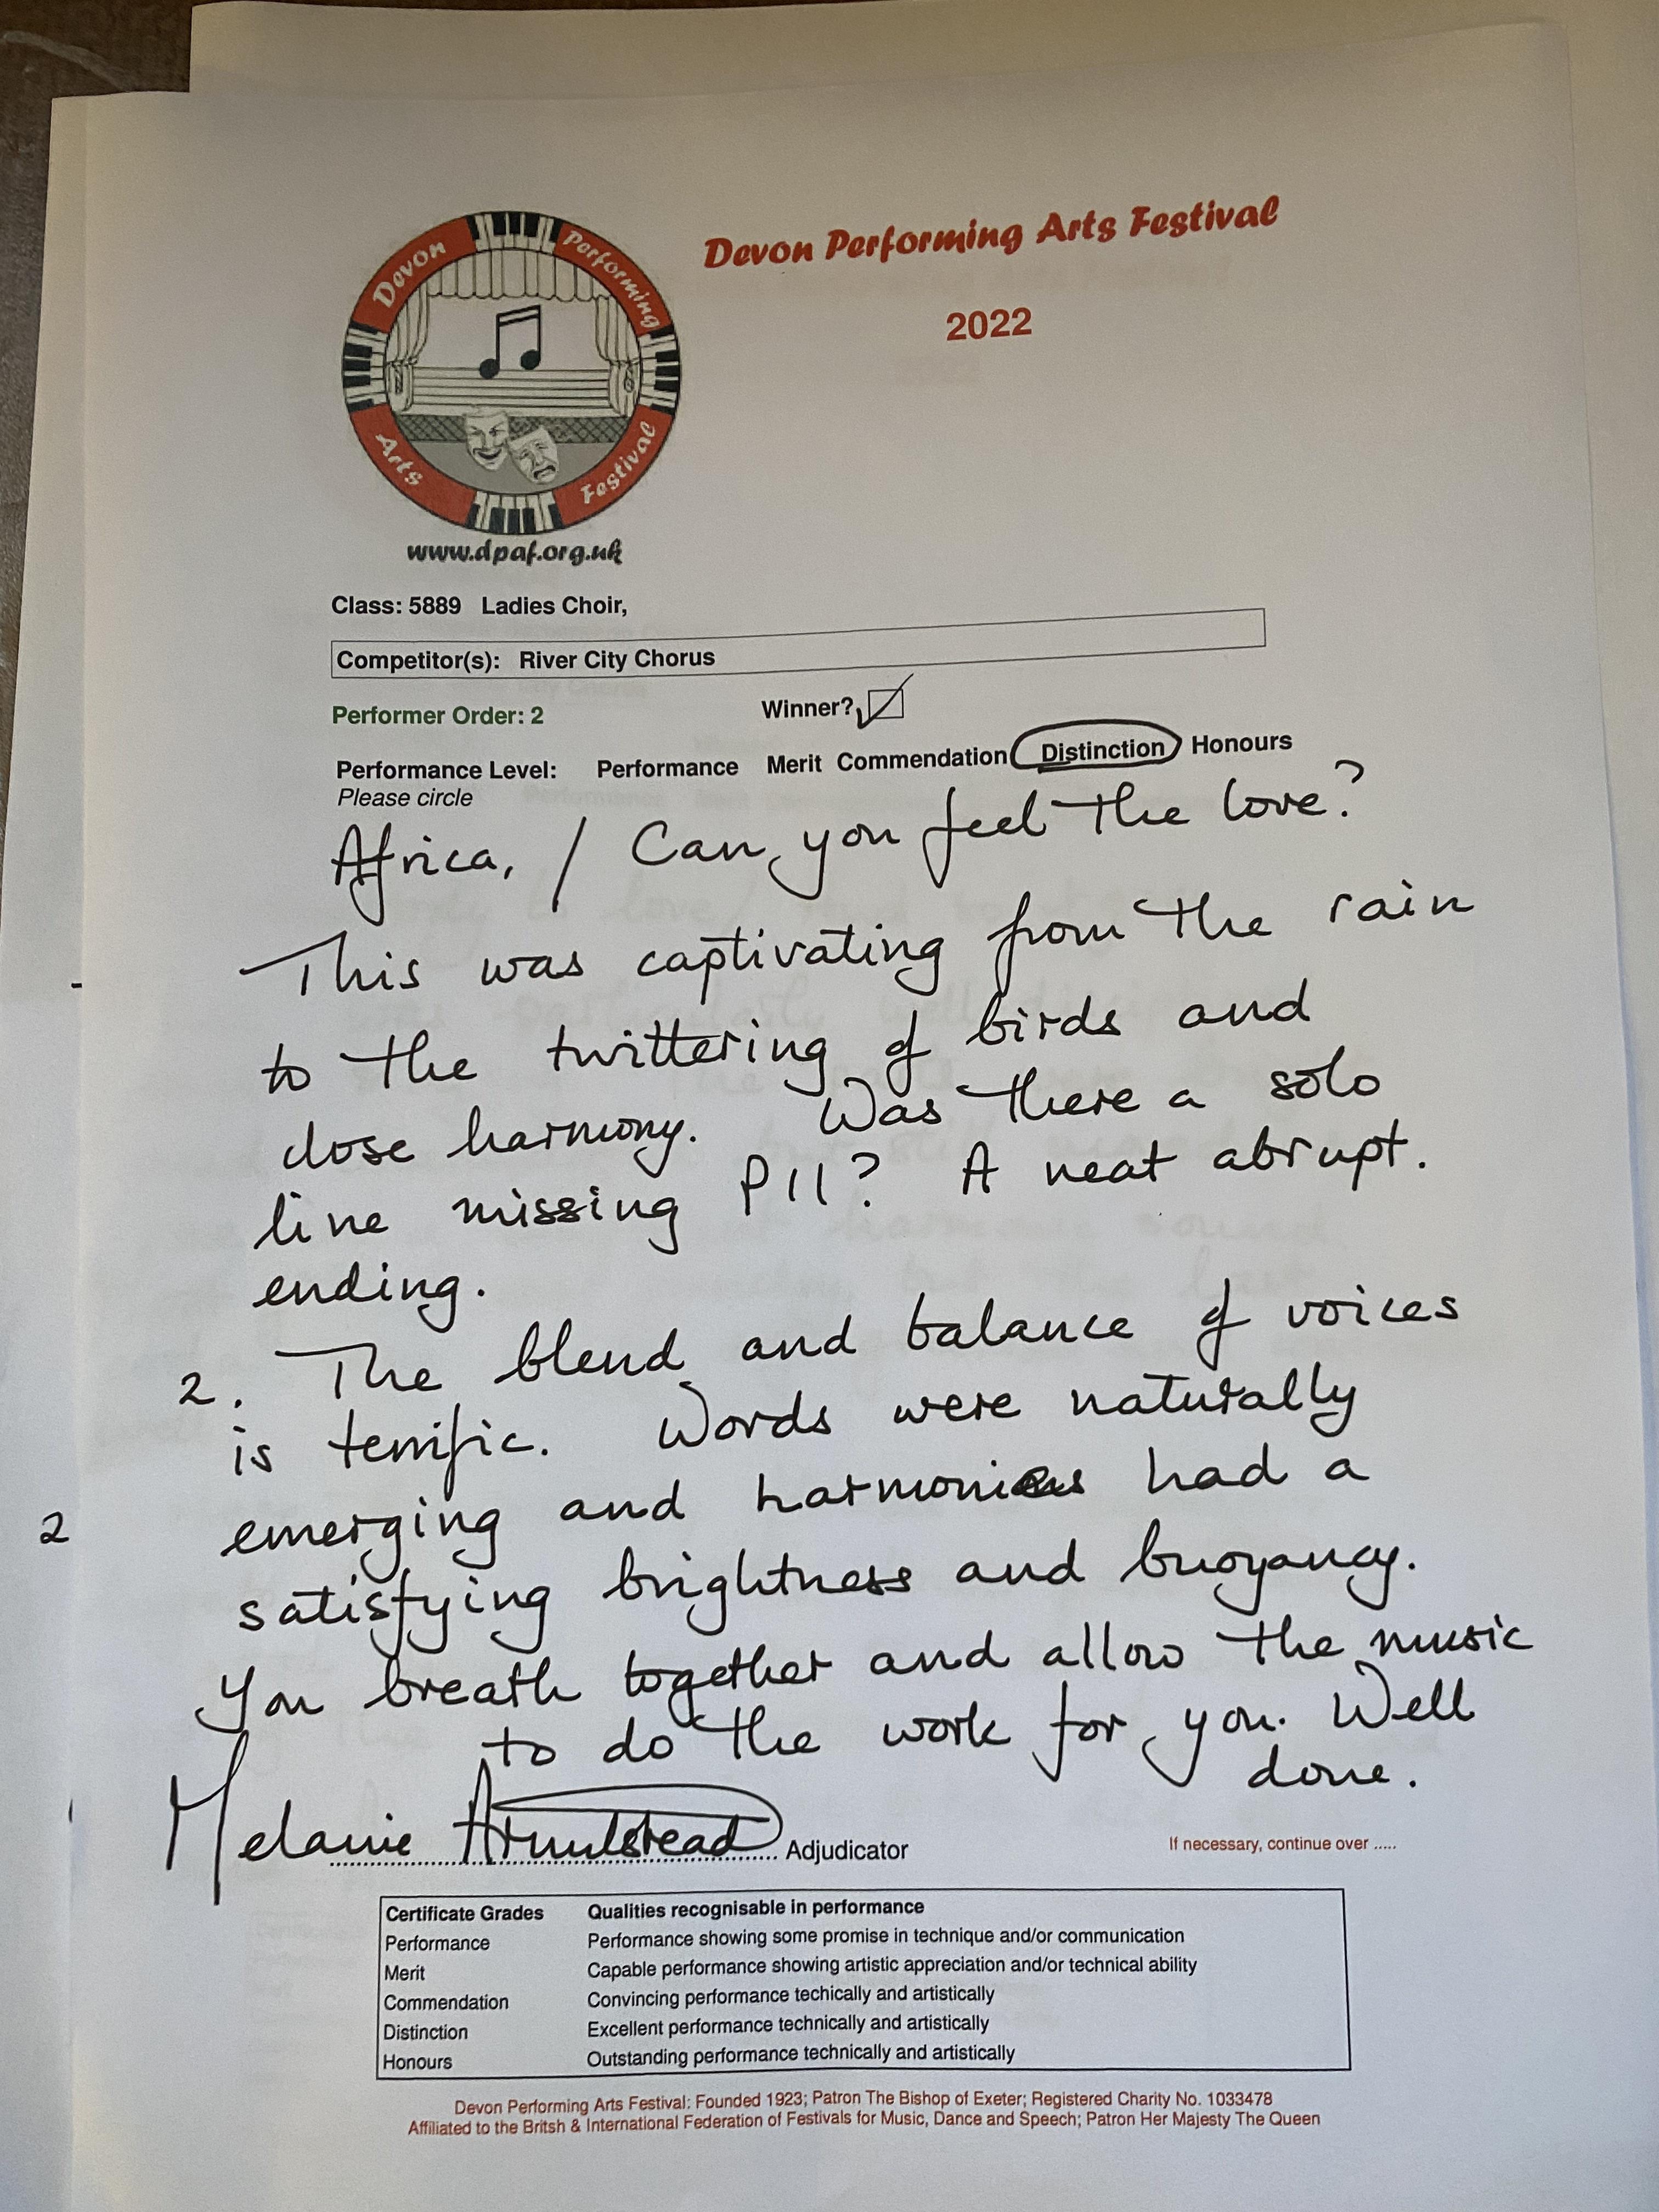 Devon Performing Arts Festival
2022
Devon Performing
Arts Festival
www.dpaf.org.uk
Class: 5889 Ladies Choir,
Competitor(s): River City Chorus
Performer Order: 2 Winner?
Performance Level: Performance Merit Commendation Distinction Honours
Please circle
Africa, / Can you feel the love?
This was captivating from the rain
to the twittering of birds and
close harmony. Was there a solo
line missing P11? A neat abrupt.
ending.
2. The blend and balance of voices
is terrific. Words were naturally
emerging and harmonies had a
2
satisfying brightness and buoyancy.
You breath together and allow the music
to do the work for you. Well
done.
Melanie Armitstead Adjudicator
If necessary, continue over .....
Certificate Grades Qualities recognisable in performance
Performance Performance showing some promise in technique and/or communication
Merit Capable performance showing artistic appreciation and/or technical ability
Commendation Convincing performance techically and artistically
Distinction Excellent performance technically and artistically
Honours Outstanding performance technically and artistically
Devon Performing Arts Festival: Founded 1923; Patron The Bishop of Exeter; Registered Charity No. 1033478
Affiliated to the Britsh & International Federation of Festivals for Music, Dance and Speech; Patron Her Majesty The Queen